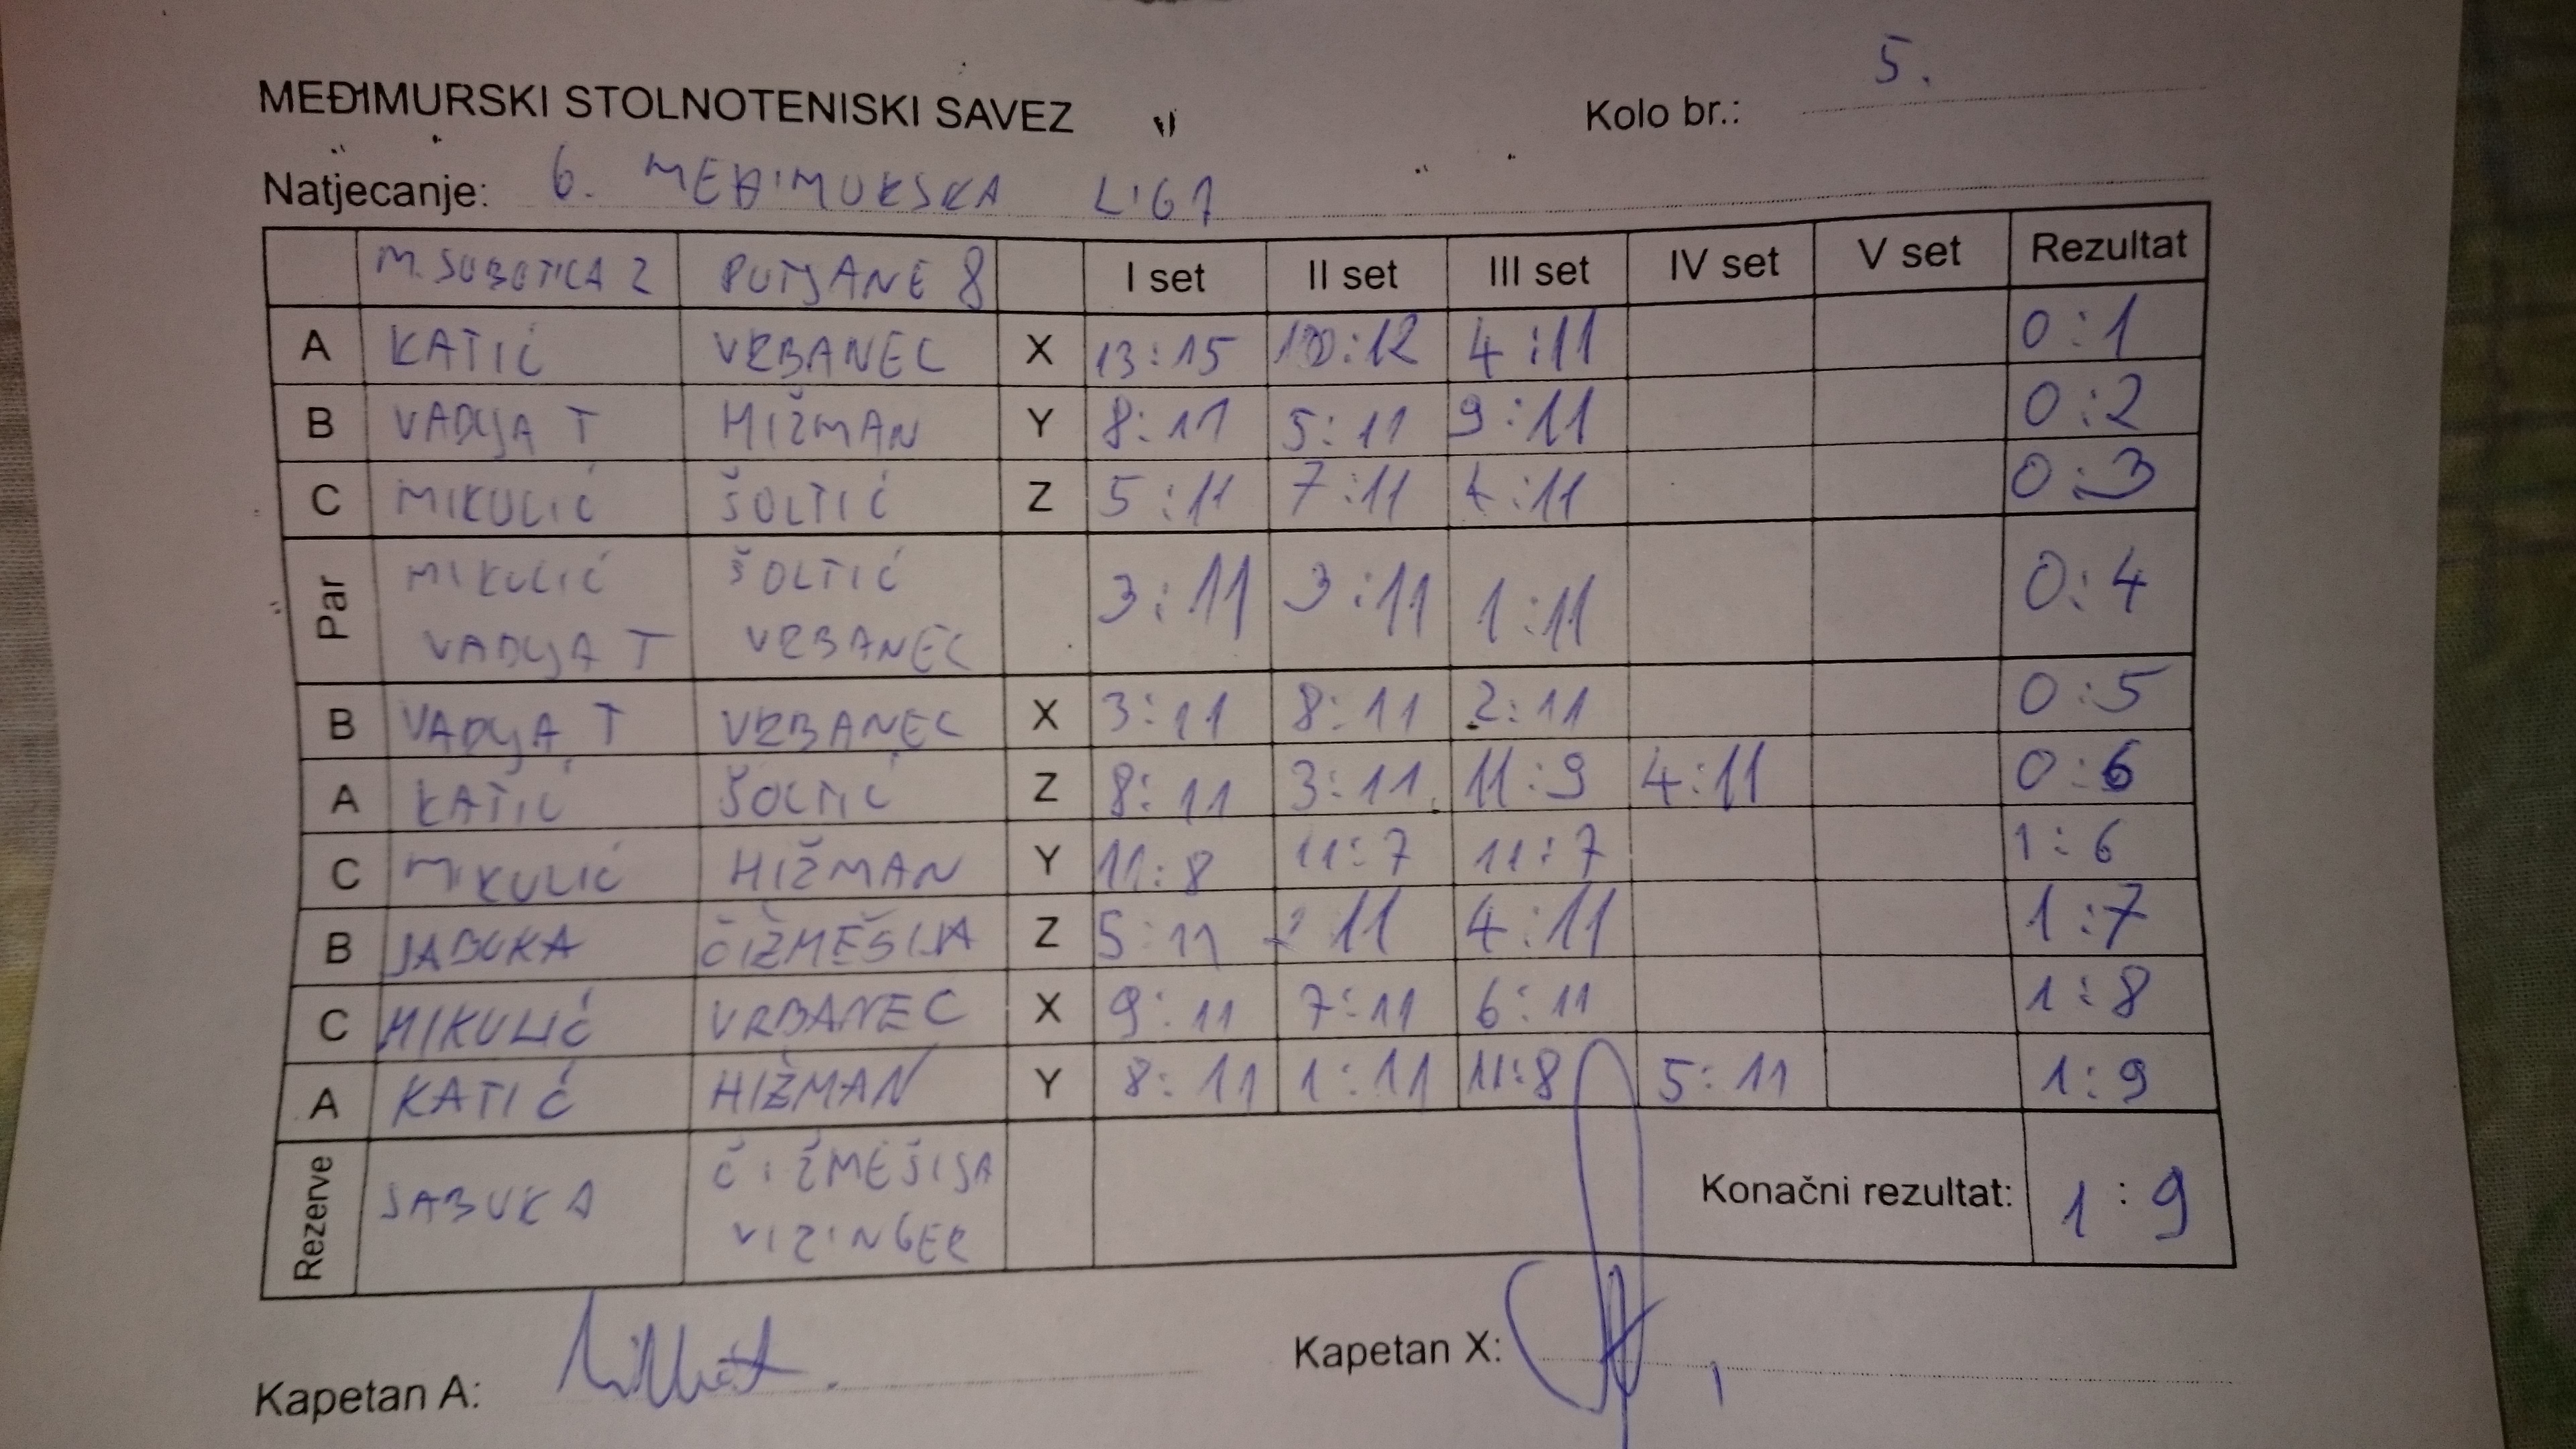 MEĐIMURSKI STOLNOTENISKI SAVEZ
Kolo br.: 5.
Natjecanje: 6. MEĐIMURSKA LIGA
M. SUBOTICA 2 PUTJANE 8 I set II set III set IV set V set Rezultat
A KATIĆ VRBANEC X 13:15 10:12 4:11 0:1
B VADLJA T HIŽMAN Y 8:11 5:11 9:11 0:2
C MIKULIĆ ŠOLTIĆ Z 5:11 7:11 4:11 0:3
Par MIKULIĆ ŠOLTIĆ 3:11 3:11 1:11 0:4
VADLJA T VRBANEC
B VADLJA T VRBANEC X 3:11 8:11 2:11 0:5
A KATIĆ ŠOLTIĆ Z 8:11 3:11 11:9 4:11 0:6
C MIKULIĆ HIŽMAN Y 11:8 11:7 11:7 1:6
B JABUKA ČIŽMEŠIJA Z 5:11 :11 4:11 1:7
C MIKULIĆ VRBANEC X 9:11 7:11 6:11 1:8
A KATIĆ HIŽMAN Y 8:11 1:11 11:8 5:11 1:9
Rezerve JABUKA ČIŽMEŠIJA Konačni rezultat: 1:9
VIZINGER
Kapetan A: Kapetan X: